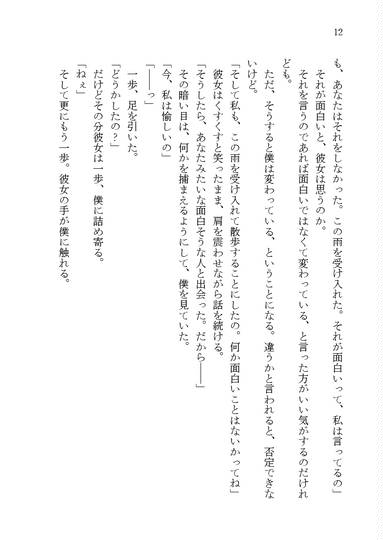 12
も、あなたはそれをしなかった。この雨を受け入れた。それが面白いって、私は言ってるの」
それが面白いと、彼女は思うのか。
それを言うのであれば面白いではなくて変わっている、と言った方がいい気がするのだけれ
ども。
ただ、そうすると僕は変わっている、ということになる。違うかと言われると、否定できな
いけど。
「そして私も、この雨を受け入れて散歩することにしたの。何か面白いことはないかってね」
彼女はくすくすと笑ったまま、肩を震わせながら話を続ける。
「そうしたら、あなたみたいな面白そうな人と出会った。だから――」
その暗い目は、何かを捕まえるようにして、僕を見ていた。
「今、私は愉しいの」
「――っ」
一歩、足を引いた。
「どうかしたの？」
だけどその分彼女は一歩、僕に詰め寄る。
「ねぇ」
そして更にもう一歩。彼女の手が僕に触れる。